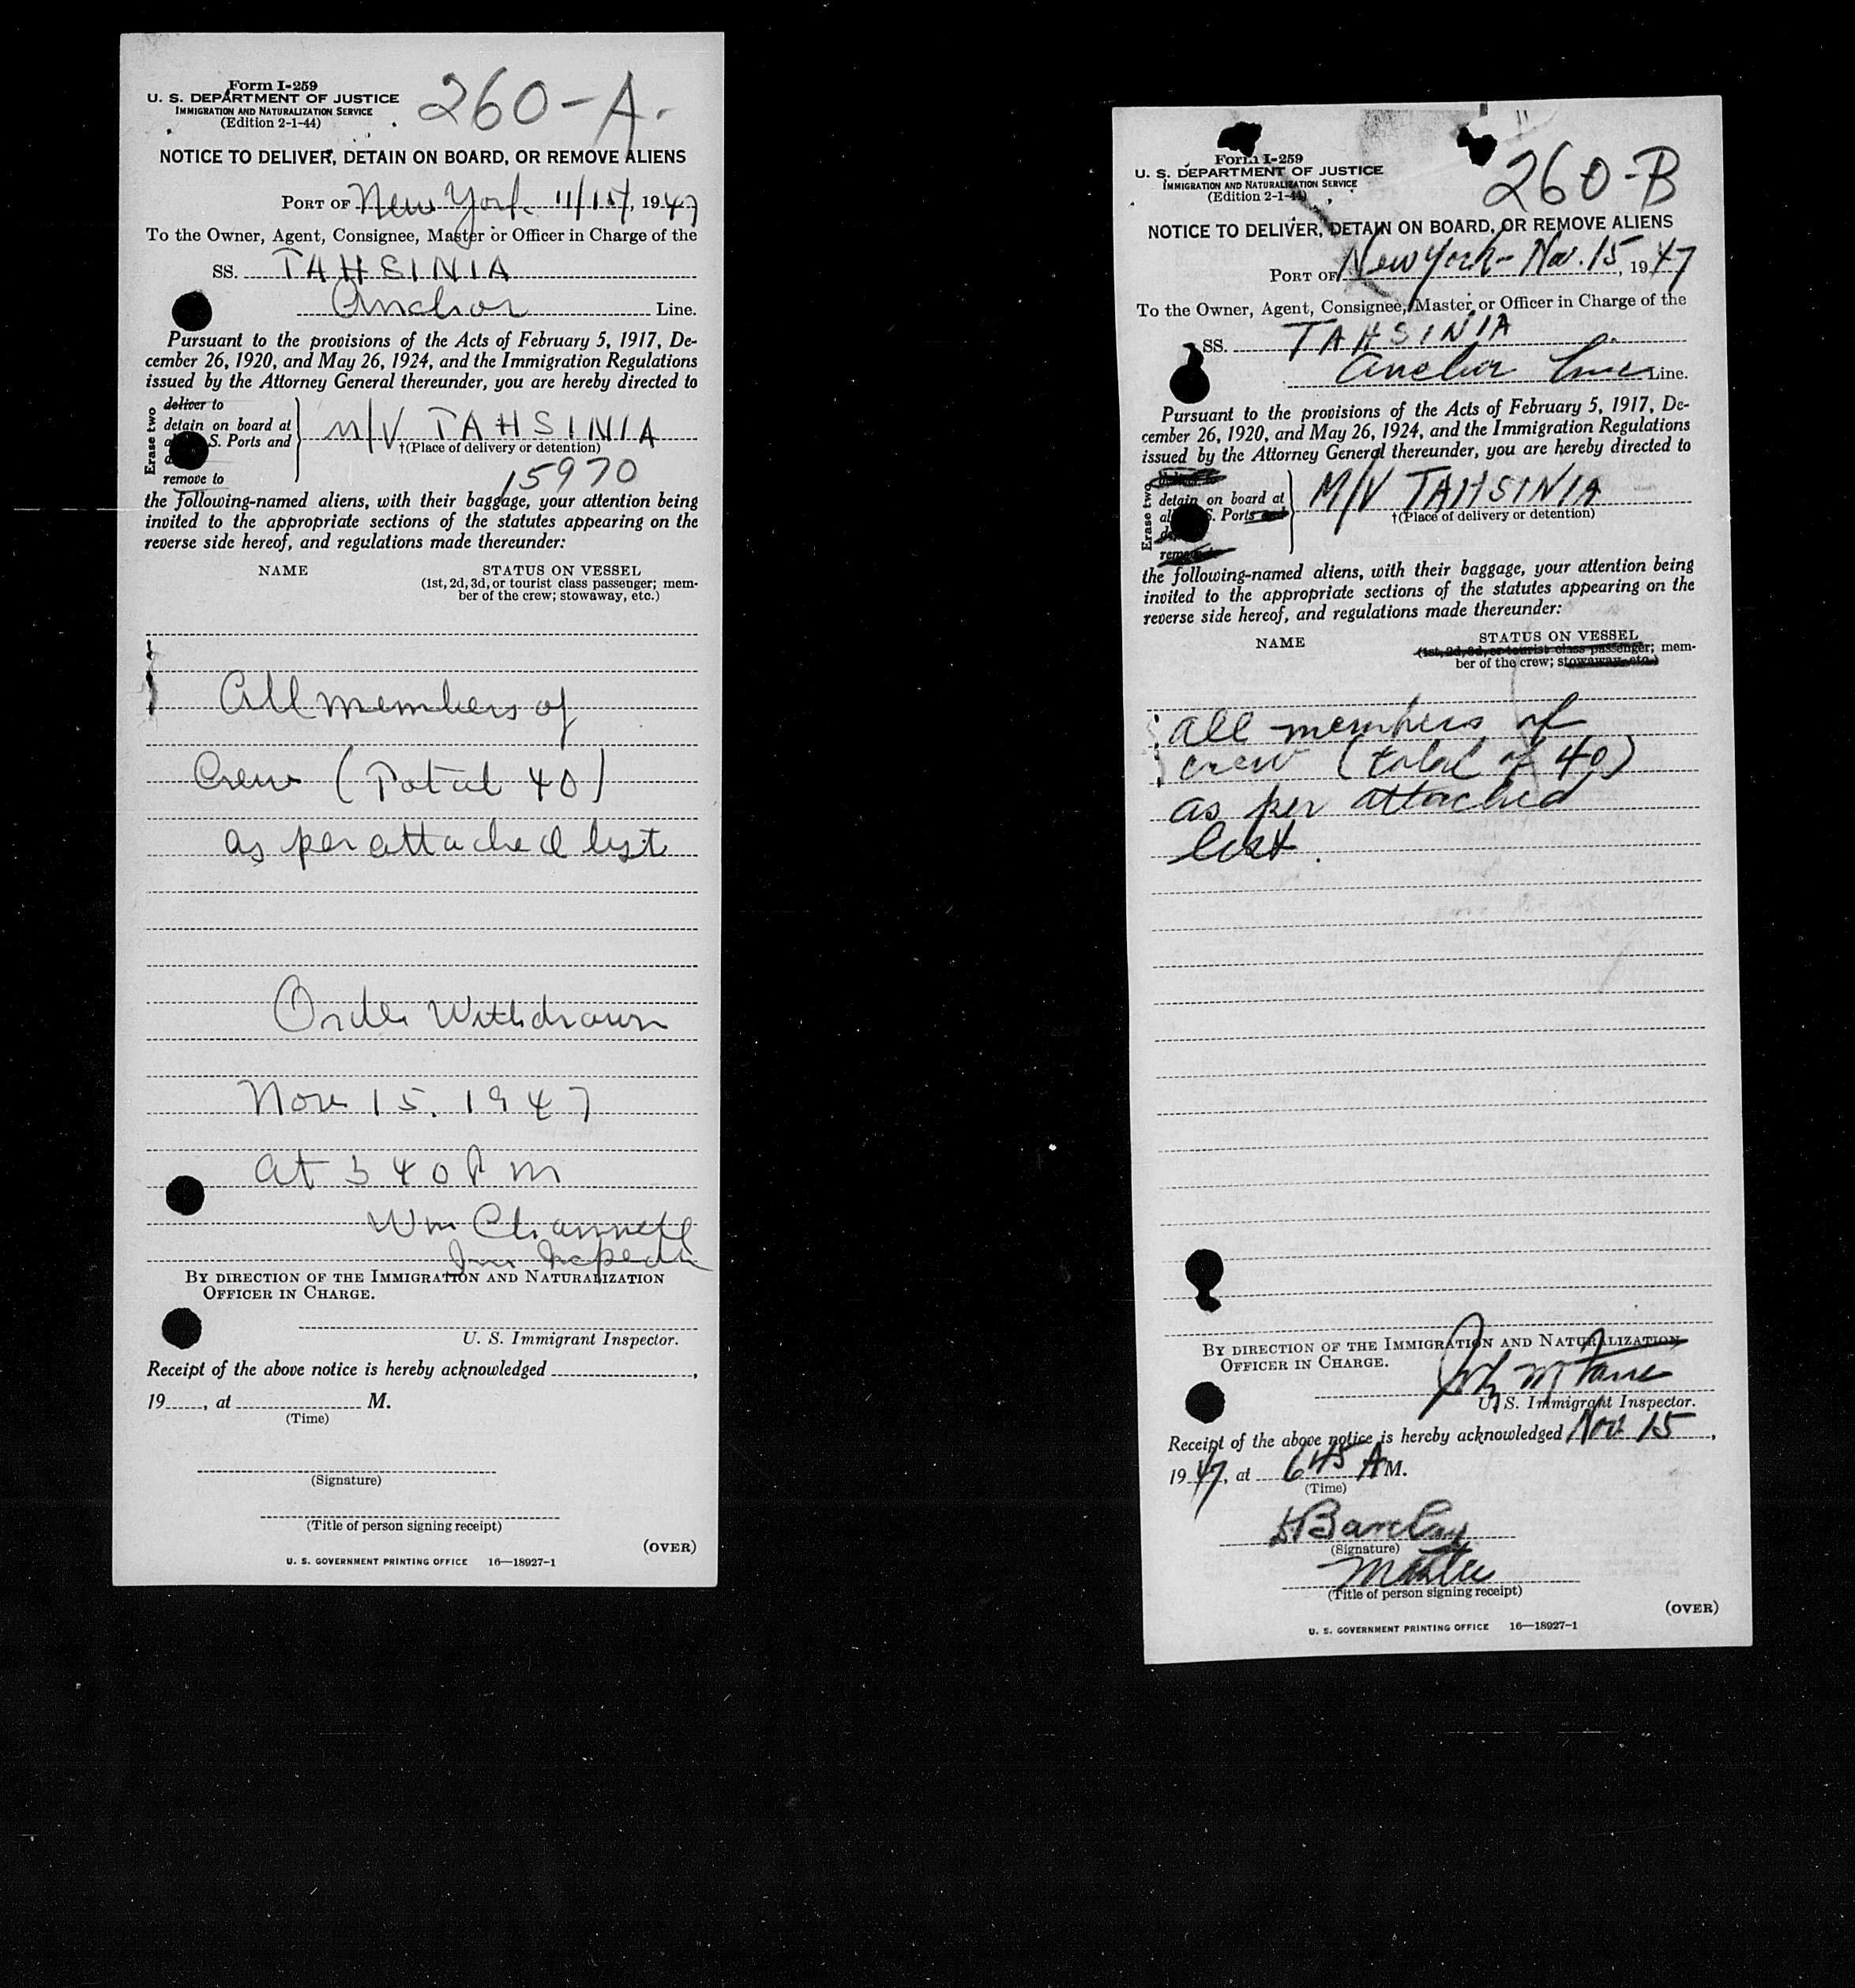 Form I-259
U. S. DEPARTMENT OF JUSTICE
IMMIGRATION AND NATURALIZATION SERVICE
(Edition 2-1-44)
260-A.
NOTICE TO DELIVER, DETAIN ON BOARD, OR REMOVE ALIENS
PORT OF New York 11/15/, 1947
To the Owner, Agent, Consignee, Master or Officer in Charge of the
SS. TAHSINIA
Anchor Line.
Pursuant to the provisions of the Acts of February 5, 1917, De-
cember 26, 1920, and May 26, 1924, and the Immigration Regulations
issued by the Attorney General thereunder, you are hereby directed to
Erase two
deliver to
detain on board at
S. Ports and
remove to
M/V TAHSINIA
†(Place of delivery or detention)
15970
the following-named aliens, with their baggage, your attention being
invited to the appropriate sections of the statutes appearing on the
reverse side hereof, and regulations made thereunder:
NAME STATUS ON VESSEL
(1st, 2d, 3d, or tourist class passenger; mem-
ber of the crew; stowaway, etc.)
All members of
Crew (Total 40)
as per attached list
Order Withdrawn
Nov 15. 1947
at 3 40 P m
Wm Channell
BY DIRECTION OF THE IMMIGRATION AND NATURALIZATION
OFFICER IN CHARGE.
U. S. Immigrant Inspector.
Receipt of the above notice is hereby acknowledged ,
19 , at M.
(Time)
(Signature)
(Title of person signing receipt)
(OVER)
U. S. GOVERNMENT PRINTING OFFICE 16—18927-1
Form I-259
U. S. DEPARTMENT OF JUSTICE
IMMIGRATION AND NATURALIZATION SERVICE
(Edition 2-1-44)
260-B
NOTICE TO DELIVER, DETAIN ON BOARD, OR REMOVE ALIENS
PORT OF New York - Nov. 15, 1947
To the Owner, Agent, Consignee, Master or Officer in Charge of the
SS. TAHSINIA
Anchor Line Line.
Pursuant to the provisions of the Acts of February 5, 1917, De-
cember 26, 1920, and May 26, 1924, and the Immigration Regulations
issued by the Attorney General thereunder, you are hereby directed to
Erase two
detain on board at
S. Ports and
remove to
M/V TAHSINIA
†(Place of delivery or detention)
the following-named aliens, with their baggage, your attention being
invited to the appropriate sections of the statutes appearing on the
reverse side hereof, and regulations made thereunder:
NAME STATUS ON VESSEL
(1st, 2d, 3d, or tourist class passenger; mem-
ber of the crew; stowaway, etc.)
all members of
crew (total of 40)
as per attached
list.
BY DIRECTION OF THE IMMIGRATION AND NATURALIZATION
OFFICER IN CHARGE.
U. S. Immigrant Inspector.
Receipt of the above notice is hereby acknowledged Nov 15,
1947, at 645 A M.
(Time)
Barclay
(Signature)
Master
(Title of person signing receipt)
(OVER)
U. S. GOVERNMENT PRINTING OFFICE 16—18927-1